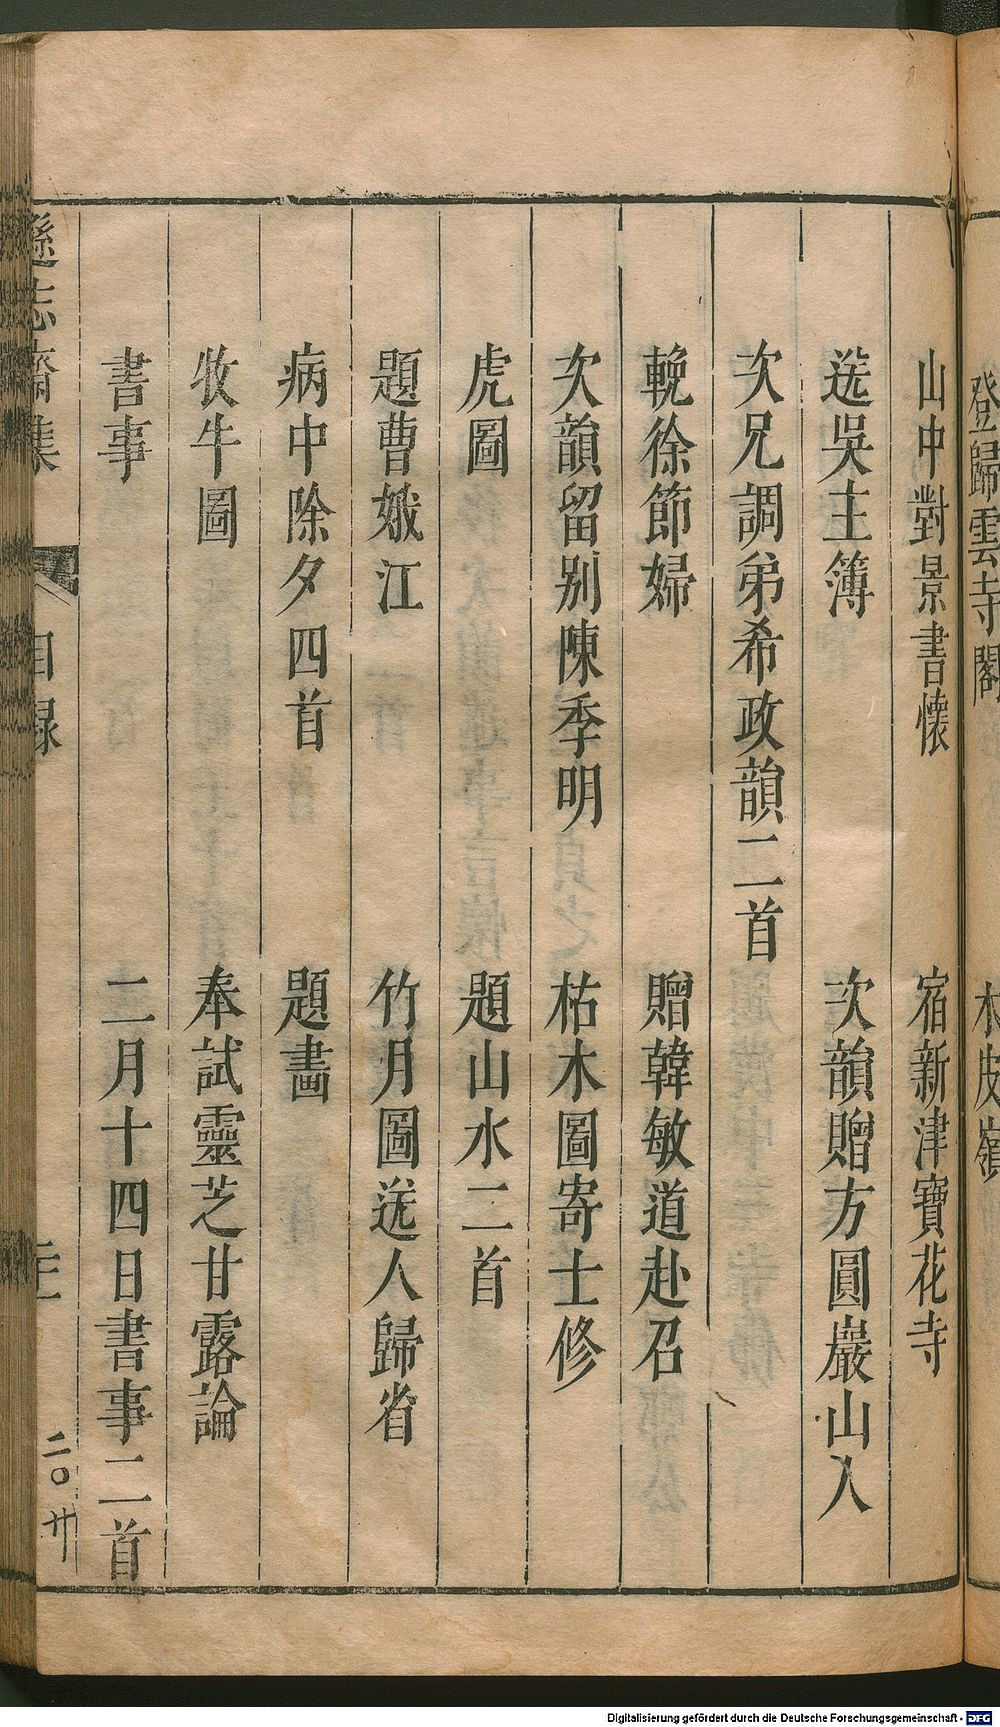 登歸雲寺閣 木皮嶺
山中對景書懷 宿新津寶花寺
送吳主簿 次韻贈方圓巖山人
次兄調弟希政韻二首
輓徐節婦 贈韓敏道赴召
次韻留别陳季明 枯木圖寄士修
虎圖 題山水二首
題曹娥江 竹月圖送人歸省
病中除夕四首 題畵
牧牛圖 奉試靈芝甘露論
書事 二月十四日書事二首
遜志齋集 目録
二〇廾
Digitalisierung gefördert durch die Deutsche Forschungsgemeinschaft - DFG